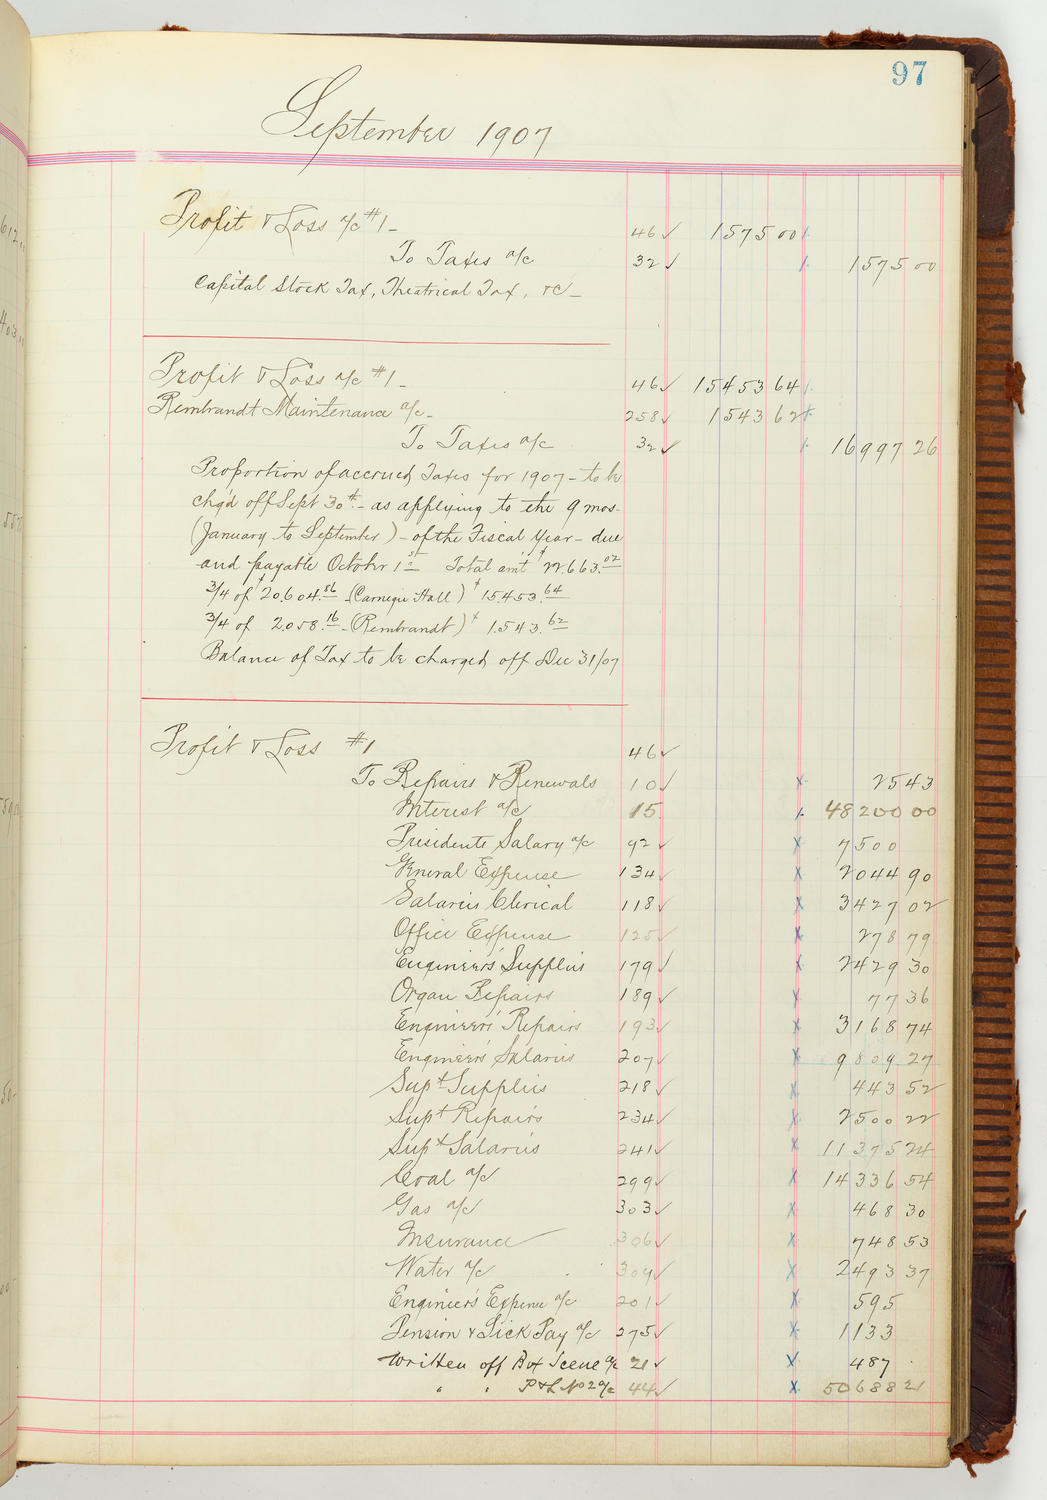 97
September 1907
Profit & Loss a/c #1 - 46 ✓ 1575 00
To Taxes a/c 32 ✓ 1575 00
Capital Stock Tax, Theatrical Tax, &c -
Profit & Loss a/c #1 - 46 ✓ 15453 64
Rembrandt Maintenance a/c - 258 ✓ 1543 62
To Taxes a/c 32 ✓ 16997 26
Proportion of accrued Taxes for 1907 - to be
chg'd off Sept 30th - as applying to the 9 mos-
(January to September) - of the Fiscal Year - due
and payable October 1st Total am't $22.663.02
3/4 of $20.604.86 (Carnegie Hall) $15.453.64
3/4 of 2.058.16 - (Rembrandt) $1.543.62
Balance of Tax to be charged off Dec 31/07
Profit & Loss #1 46 ✓
To Repairs & Renewals 10 ✓ x 25 43
Interest a/c 15 x 48200 00
Presidents Salary a/c 92 ✓ x 7500
General Expense 134 ✓ x 2044 90
Salaries Clerical 118 ✓ x 3427 02
Office Expense 125 ✓ x 278 79
Engineers' Supplies 179 ✓ x 2429 30
Organ Repairs 189 ✓ x 77 36
Engineers' Repairs 193 ✓ x 3168 74
Engineers' Salaries 207 ✓ x 9809 27
Supt Supplies 218 ✓ x 443 52
Supt Repairs 234 ✓ x 2500 22
Supt Salaries 241 ✓ x 11375 24
Coal a/c 299 ✓ x 14336 54
Gas a/c 303 ✓ x 468 30
Insurance 306 ✓ x 748 53
Water a/c 304 ✓ x 2493 37
Engineer's Expense a/c 201 ✓ x 595
Pension & Sick Pay a/c 275 ✓ x 1133
Written off Scene a/c 21 ✓ x 487
" " P & L No 2 a/c 44 ✓ x 50688 21